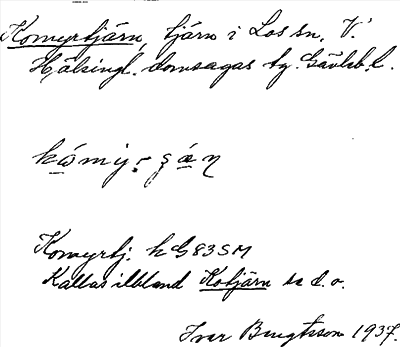 Komyrtjärn, tjärn i Los sn, V.
Hälsingl. domsagas tg. Gävleb. l.
Komyrtj. k G83SM
Kallas ibland Kotjärn
Ivar Bengtsson 1937.